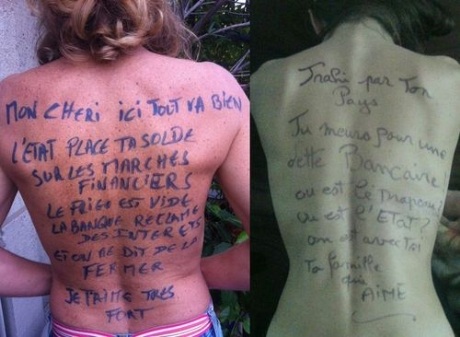 MON CHERI ICI TOUT VA BIEN
L'ETAT PLACE TA SOLDE
SUR LES MARCHES
FINANCIERS
LE FRIGO EST VIDE
LA BANQUE RECLAME
DES INTERETS
ET ON ME DIT DE LA
FERMER
JE T'AIME TRES
FORT
Trahi par Ton
Pays
Tu meurs pour une
dette Bancaire
ou est le Drapeau?
ou est l'ETAT?
on est avec toi
Ta famille
qui
AIME